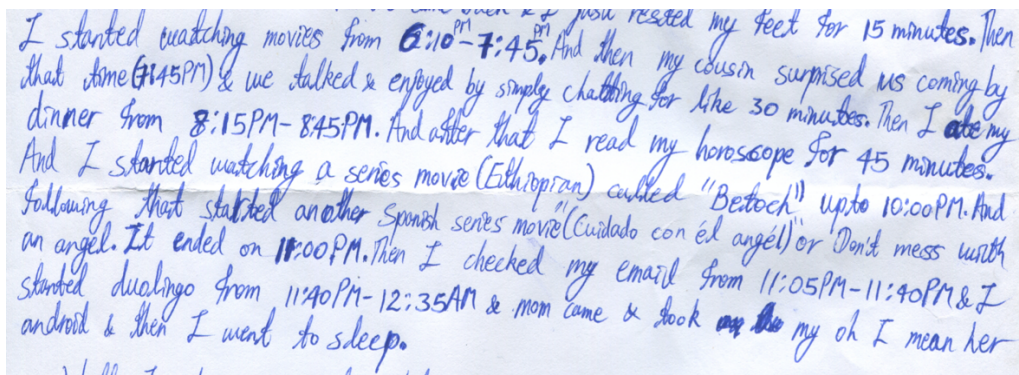 I just rested my feet for 15 minutes. Then
I started watching movies from 6:10PM-7:45PM. And then my cousin surprised us coming by
that time (7:45PM) & we talked & enjoyed by simply chatting for like 30 minutes. Then I ate my
dinner from 8:15PM-8:45PM. And after that I read my horoscope for 45 minutes.
And I started watching a series movie (Ethiopian) called "Betoch" upto 10:00PM. And
following that started another Spanish series movie (Cuidado con él angél) or Don't mess with
an angel. It ended on 11:00PM. Then I checked my email from 11:05PM-11:40PM & I
started duolingo from 11:40PM-12:35AM & mom came & took my oh I mean her
android & then I went to sleep.